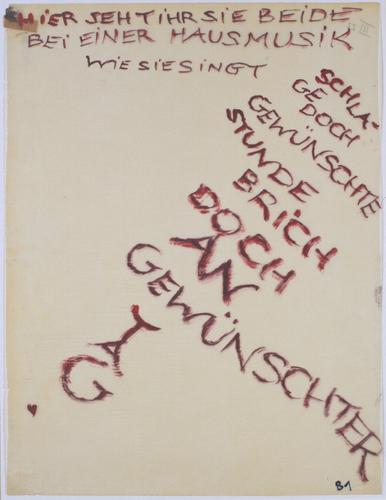 HIER SEHT IHR SIE BEIDE
BEI EINER HAUSMUSIK
WIE SIE SINGT
SCHLA-
GE DOCH
GEWÜNSCHTE
STUNDE
BRICH
DOCH
AN
GEWÜNSCHTER
TAG
81